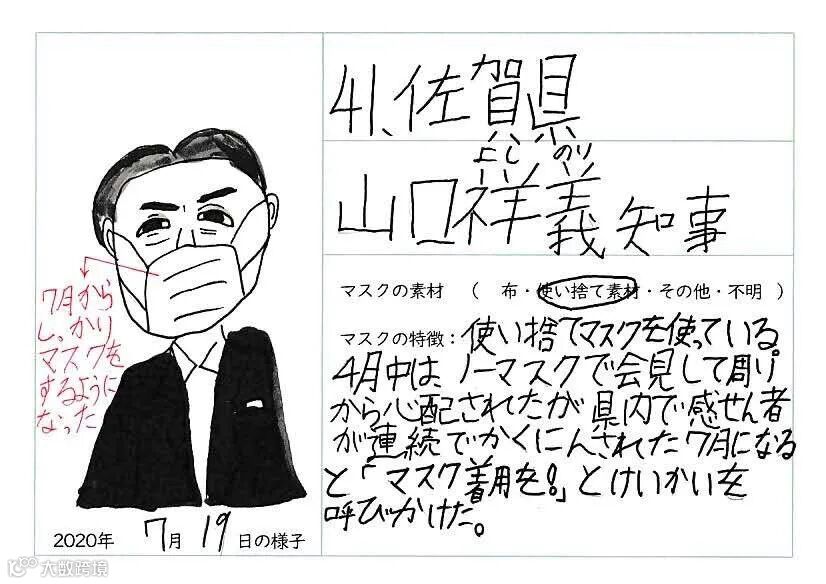 41、佐賀県
よし のり
山口祥義知事
マスクの素材 ( 布・使い捨て素材・その他・不明 )
マスクの特徴：使い捨てマスクを使っている。
4月中は、ノーマスクで会見して周り
から心配されたが県内で感せん者
が連続でかくにんされた7月になる
と「マスク着用を!」とけいかいを
呼びかけた。
7月から
しっかり
マスクを
するように
なった
2020年 7月 19日の様子
大数跨境